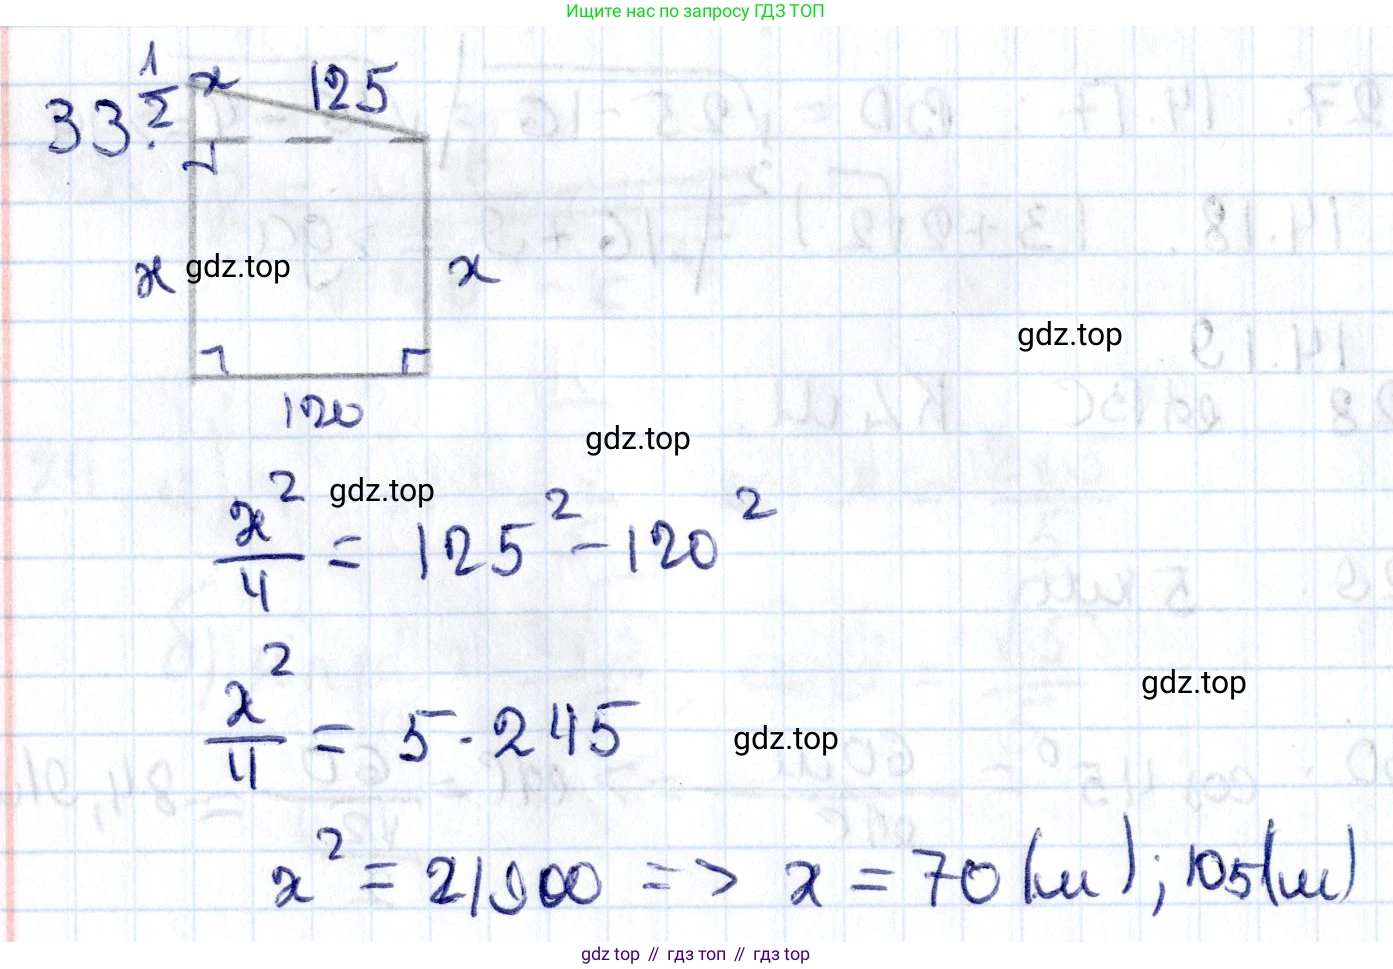 Ищите нас по запросу ГДЗ ТОП
33.
1/2 x
125
x
gdz.top
x
gdz.top
120
gdz.top
x²/4 = 125² - 120²
gdz.top
x²/4 = 5 · 245
gdz.top
gdz.top
x² = 21900 => x = 70 (м); 105 (м)
gdz.top // гдз топ // gdz top